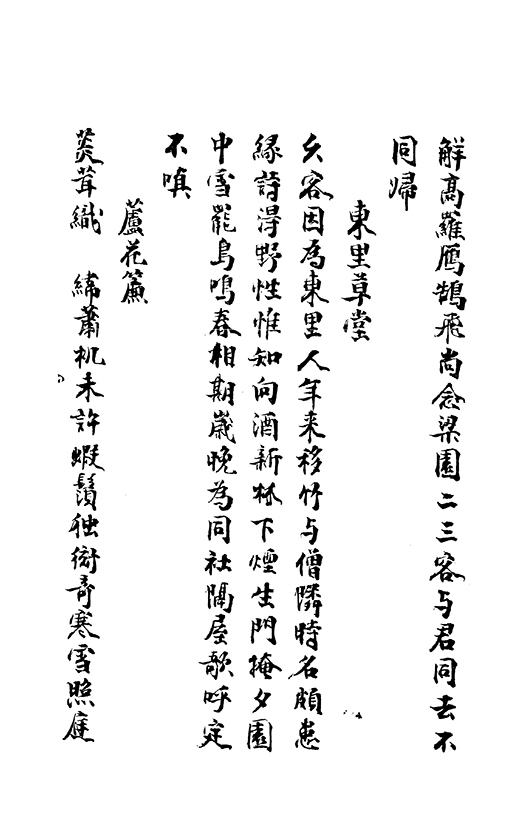 解高羅鴈鵠飛尚念梁園二三客与君同去不
同歸
東里草堂
久客因爲東里人年来移竹与僧隣時名頗患
緣詩得野性惟知向酒新林下煙生門掩夕園
中雪罷鳥鳴春相期歲晚為同社隔屋歌呼定
不嗔
蘆花簾
茸織 綈蕭机未許蝦鬚独衒奇寒雪照庭